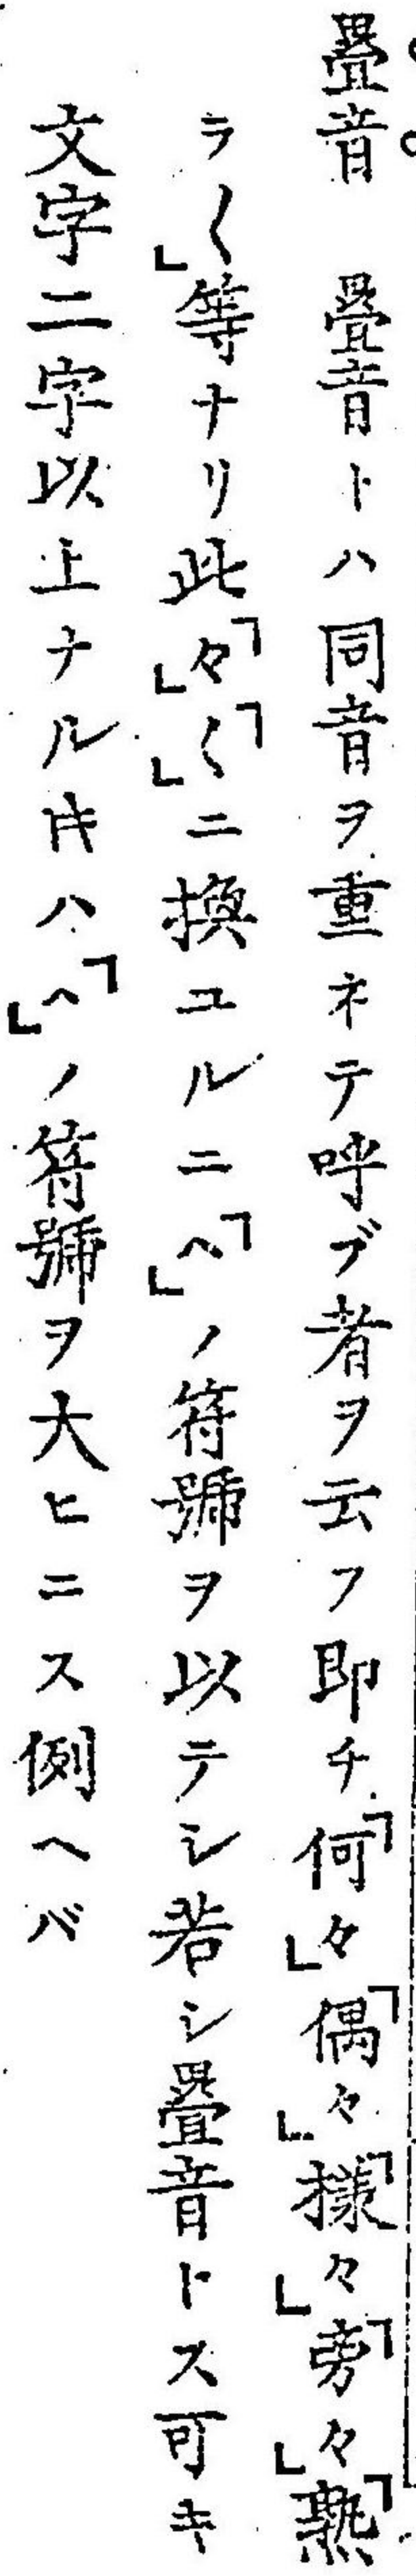 疊音　疊音トハ同音ヲ重ネテ呼ブ者ヲ云フ即チ「何々」「偶々」「様々」「旁々」「熟
ラ〱」等ナリ此「々」「〱」ニ換ユルニ「ヘ」ノ符號ヲ以テシ若シ疊音トス可キ
文字二字以上ナル𪜈ハ「ヘ」ノ符號ヲ大ヒニス例ヘバ